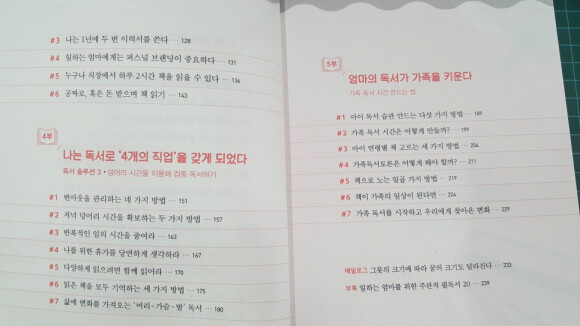 #3 나는 1년에 두 번 이력서를 쓴다 ··· 128
#4 일하는 엄마에게는 퍼스널 브랜딩이 중요하다 ··· 131
#5 누구나 직장에서 하루 2시간 책을 읽을 수 있다 ··· 136
#6 공짜로, 혹은 돈 받으며 책 읽기 ··· 143
4부
나는 독서로 '4개의 직업'을 갖게 되었다
독서 솔루션 3 • 덩어리 시간을 이용해 집중 독서하기
#1 번아웃을 관리하는 네 가지 방법 ··· 151
#2 저녁 덩어리 시간을 확보하는 두 가지 방법 ··· 157
#3 반복적인 일의 시간을 줄여라 ··· 163
#4 나를 위한 휴가를 당연하게 생각하라 ··· 167
#5 다양하게 읽으려면 함께 읽어라 ··· 170
#6 읽은 책을 모두 기억하는 세 가지 방법 ··· 175
#7 삶에 변화를 가져오는 '머리-가슴-발' 독서 ··· 180
5부
엄마의 독서가 가족을 키운다
가족 독서 시간 만드는 법
#1 아이 독서 습관 만드는 다섯 가지 방법 ··· 189
#2 가족 독서 시간은 어떻게 만들까? ··· 199
#3 아이 연령별 책 고르는 세 가지 방법 ··· 204
#4 가족독서토론은 어떻게 해야 할까? ··· 211
#5 책으로 노는 일곱 가지 방법 ··· 219
#6 책이 가족의 일상이 된다면 ··· 224
#7 가족 독서를 시작하고 우리에게 찾아온 변화 ··· 229
에필로그 그릇의 크기에 따라 꿈의 크기도 달라진다 ··· 233
부록 일하는 엄마를 위한 주관적 필독서 20 ··· 239